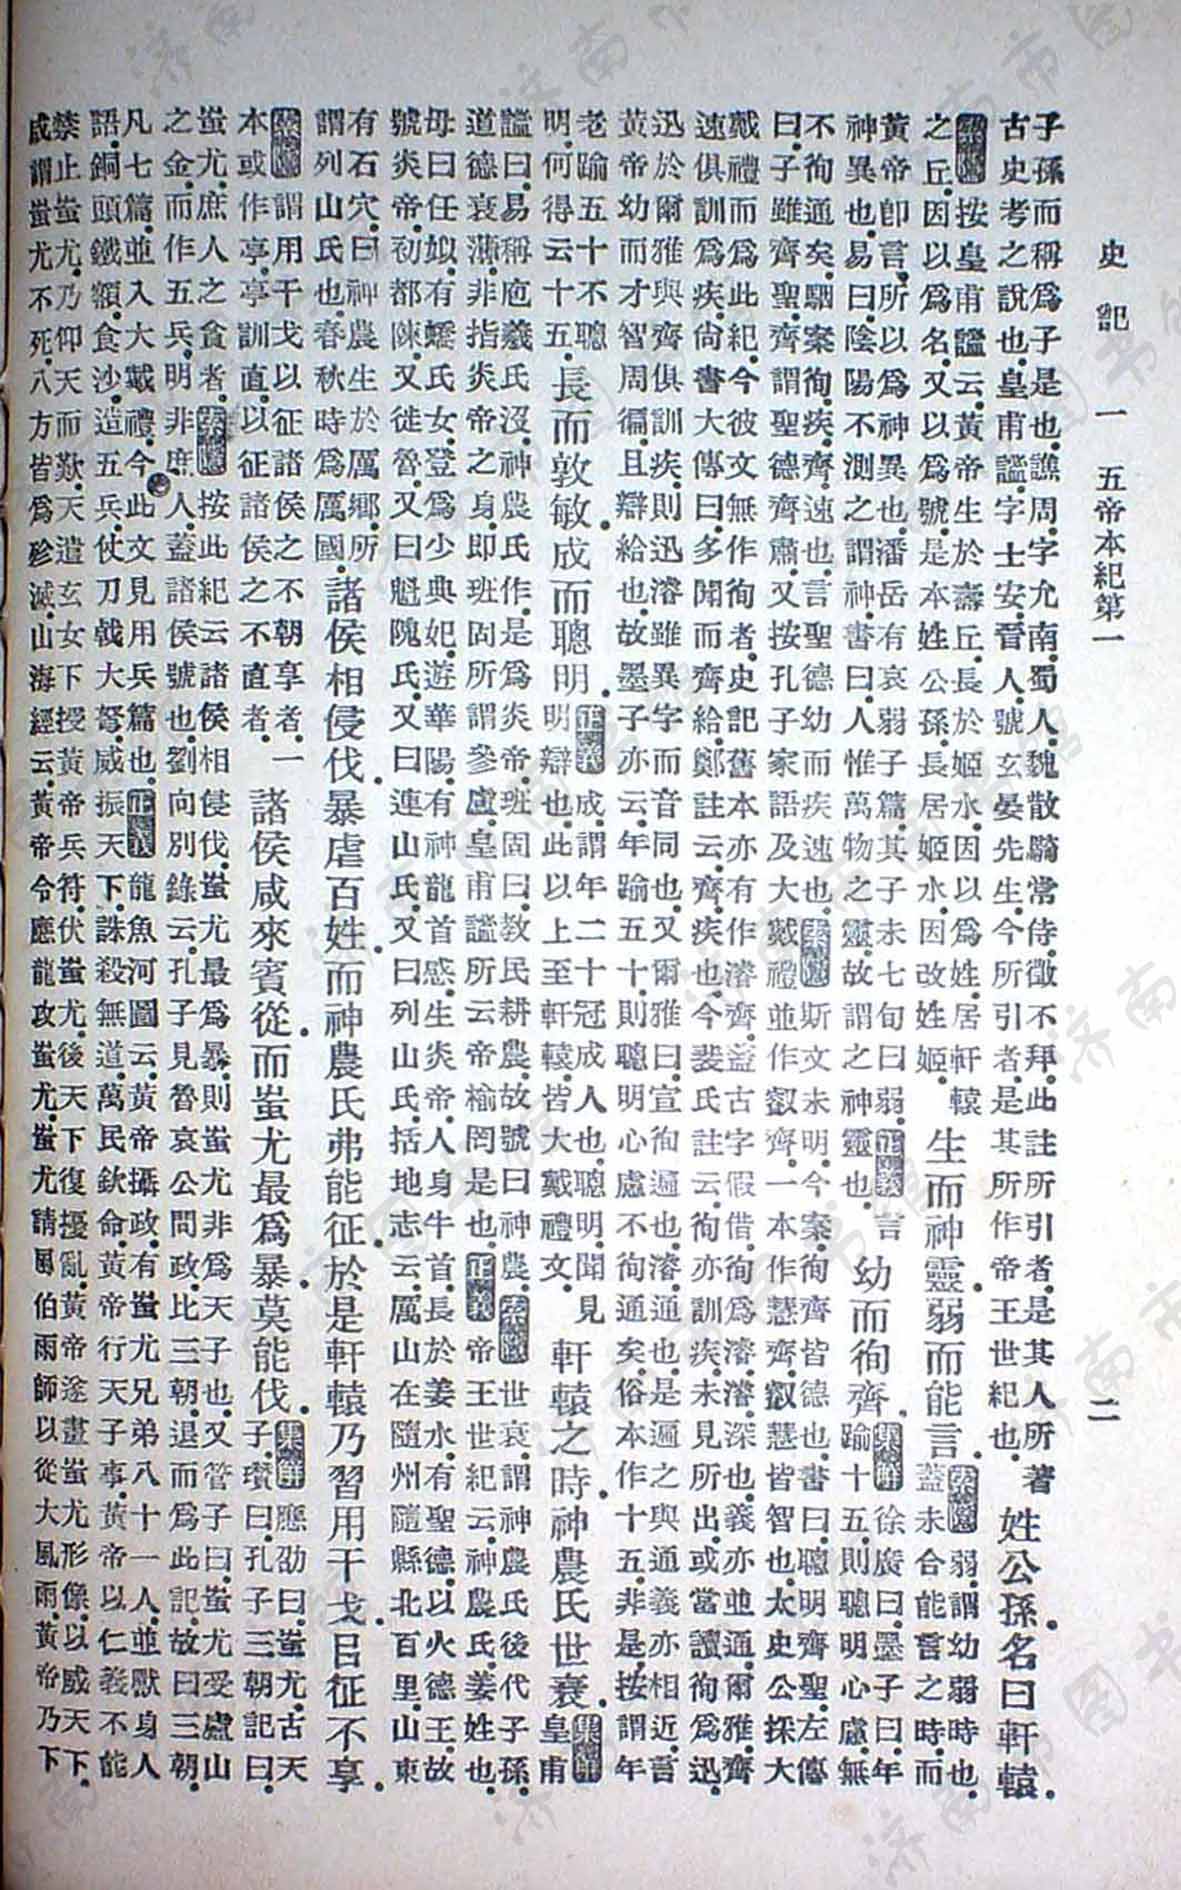 史記一 五帝本紀第一 二
子孫而稱爲子是也.譙周,字允南,蜀人,魏散騎常侍徵不拜.此註所引者,是其人所著
古史考之說也.皇甫謐,字士安,晉人,號玄晏先生.今所引者,是其所作帝王世紀也.
姓公孫.名曰軒轅.
索隱按皇甫謐云,黃帝生於壽丘,長於姬水,因以爲姓.居軒轅
之丘,因以爲名,又以爲號.是本姓公孫,長居姬水,因改姓姬.
生而神靈.弱而能言.
索隱弱,謂幼弱時也.
蓋未合能言之時,而
黃帝卽言,所以爲神異也.潘岳有哀弱子篇,其子未七旬曰弱.正義言
神異也.易曰,陰陽不測之謂神.書曰,人惟萬物之靈,故謂之神靈也.
幼而徇齊.
集解徐廣曰,墨子曰,年
踰十五,則聰明心慮無
不徇通矣.駰案,徇,疾.齊,速也.言聖德幼而疾速也.索隱斯文未明.今案,徇齊皆德也.書曰,聰明齊聖.左傳
曰,子雖齊聖.齊謂聖德齊肅.又按孔子家語及大戴禮並作叡齊,一本作慧齊.叡慧皆智也.太史公採大
戴禮而爲此紀.今彼文無作徇者.史記舊本亦有作濬齊.蓋古字假借,徇爲濬,濬,深也.義亦並通.爾雅,齊
速俱訓爲疾.尙書大傳曰,多聞而齊給.鄭註云,齊,疾也.今裴氏註云,徇亦訓疾,未見所出.或當讀徇爲迅.
迅於爾雅與齊俱訓疾.則迅濬雖異字而音同也.又爾雅曰,宣徇,遍也.濬,通也.是遍之與通義亦相近.言
黃帝幼而才智周徧,且辯給也.故墨子亦云,年踰五十,則聰明心慮不徇通矣.俗本作十五,非是.按謂年
老踰五十不聰
明,何得云十五.
長而敦敏.成而聰明.
正義成,謂年二十冠,成人也.聰明,聞見
明辯也.此以上至軒轅,皆大戴禮文.
軒轅之時.神農氏世衰.
集解
皇甫
謐曰,易稱庖羲氏沒,神農氏作,是爲炎帝.班固曰,教民耕農,故號曰神農.索隱世衰,謂神農氏後代子孫
道德衰薄,非指炎帝之身.即班固所謂參盧,皇甫謐所云帝榆罔是也.正義帝王世紀云,神農氏,姜姓也.
母曰任姒,有蟜氏女,登爲少典妃.遊華陽,有神龍首,感生炎帝.人身牛首,長於姜水.有聖德,以火德王,故
號炎帝.初都陳,又徙魯.又曰魁隗氏,又曰連山氏,又曰列山氏.括地志云,厲山在隨州隨縣北百里.山東
有石穴.曰神農生於厲鄉,所
謂列山氏也.春秋時爲厲國.
諸侯相侵伐.暴虐百姓.而神農氏弗能征.於是軒轅乃習用干戈.㠯征不享.
索隱謂用干戈以征諸侯之不朝享者.一
本或作亭.亭訓直.以征諸侯之不直者.
諸侯咸來賓從.而蚩尤最爲暴.莫能伐.
集解應劭曰,蚩尤,古天
子.瓚曰,孔子三朝記曰,
蚩尤,庶人之貪者.索隱按此紀云諸侯相侵伐,蚩尤最爲暴.則蚩尤非爲天子也.又管子曰,蚩尤受盧山
之金而作五兵.明非庶人,蓋諸侯號也.劉向別錄云,孔子見魯哀公問政,比三朝,退而爲此記,故曰三朝.
凡七篇,並入大戴禮.今此文見用兵篇也.正義龍魚河圖云,黃帝攝政,有蚩尤兄弟八十一人,並獸身人
語,銅頭鐵額,食沙,造五兵,仗刀戟大弩,威振天下,誅殺無道.萬民欽命黃帝行天子事.黃帝以仁義不能
禁止蚩尤,乃仰天而歎.天遣玄女下授黃帝兵符,伏蚩尤.後天下復擾亂,黃帝遂畫蚩尤形像,以威天下.
咸謂蚩尤不死,八方皆爲殄滅.山海經云,黃帝令應龍攻蚩尤.蚩尤請風伯雨師以從,大風雨.黃帝乃下